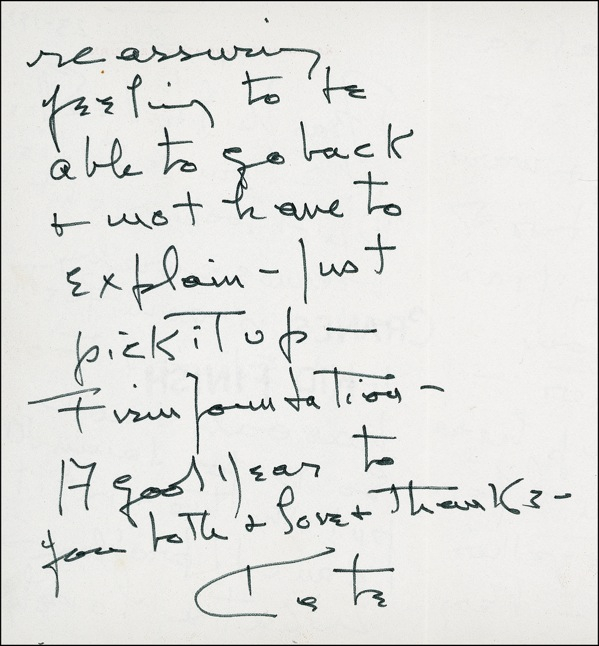 reassuring
feeling to be
able to go back
+ not have to
explain - just
pick it up —
Firm foundation -
A good year to
you both + love + thanks -
Kate